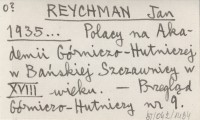 o?
REYCHMAN Jan
1935... Polacy na Aka-
demii Górniczo-Hutniczej
w Bańskiej Szczawnicy w
XVIII wieku. — Przegląd
Górniczo-Hutniczy nr 9.